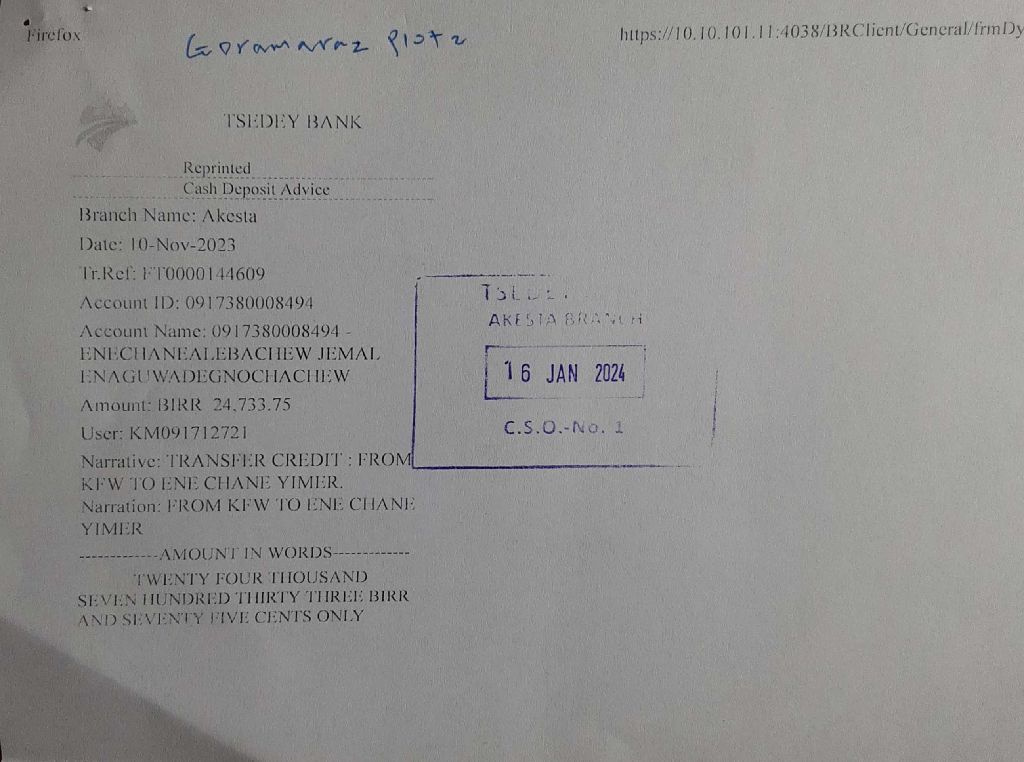 Firefox
Goramaraz Plot 2
https://10.10.101.11:4038/BRClient/General/frmDy
TSEDEY BANK
Reprinted
Cash Deposit Advice
Branch Name: Akesta
Date: 10-Nov-2023
Tr.Ref: FT0000144609
Account ID: 0917380008494
Account Name: 0917380008494 -
ENECHANEALEBACHEW JEMAL
ENAGUWADEGNOCHACHEW
Amount: BIRR 24,733.75
User: KM091712721
Narrative: TRANSFER CREDIT : FROM
KFW TO ENE CHANE YIMER.
Narration: FROM KFW TO ENE CHANE
YIMER
-------------AMOUNT IN WORDS-------------
TWENTY FOUR THOUSAND
SEVEN HUNDRED THIRTY THREE BIRR
AND SEVENTY FIVE CENTS ONLY
AKESTA BRANCH
16 JAN 2024
C.S.O.-No. 1